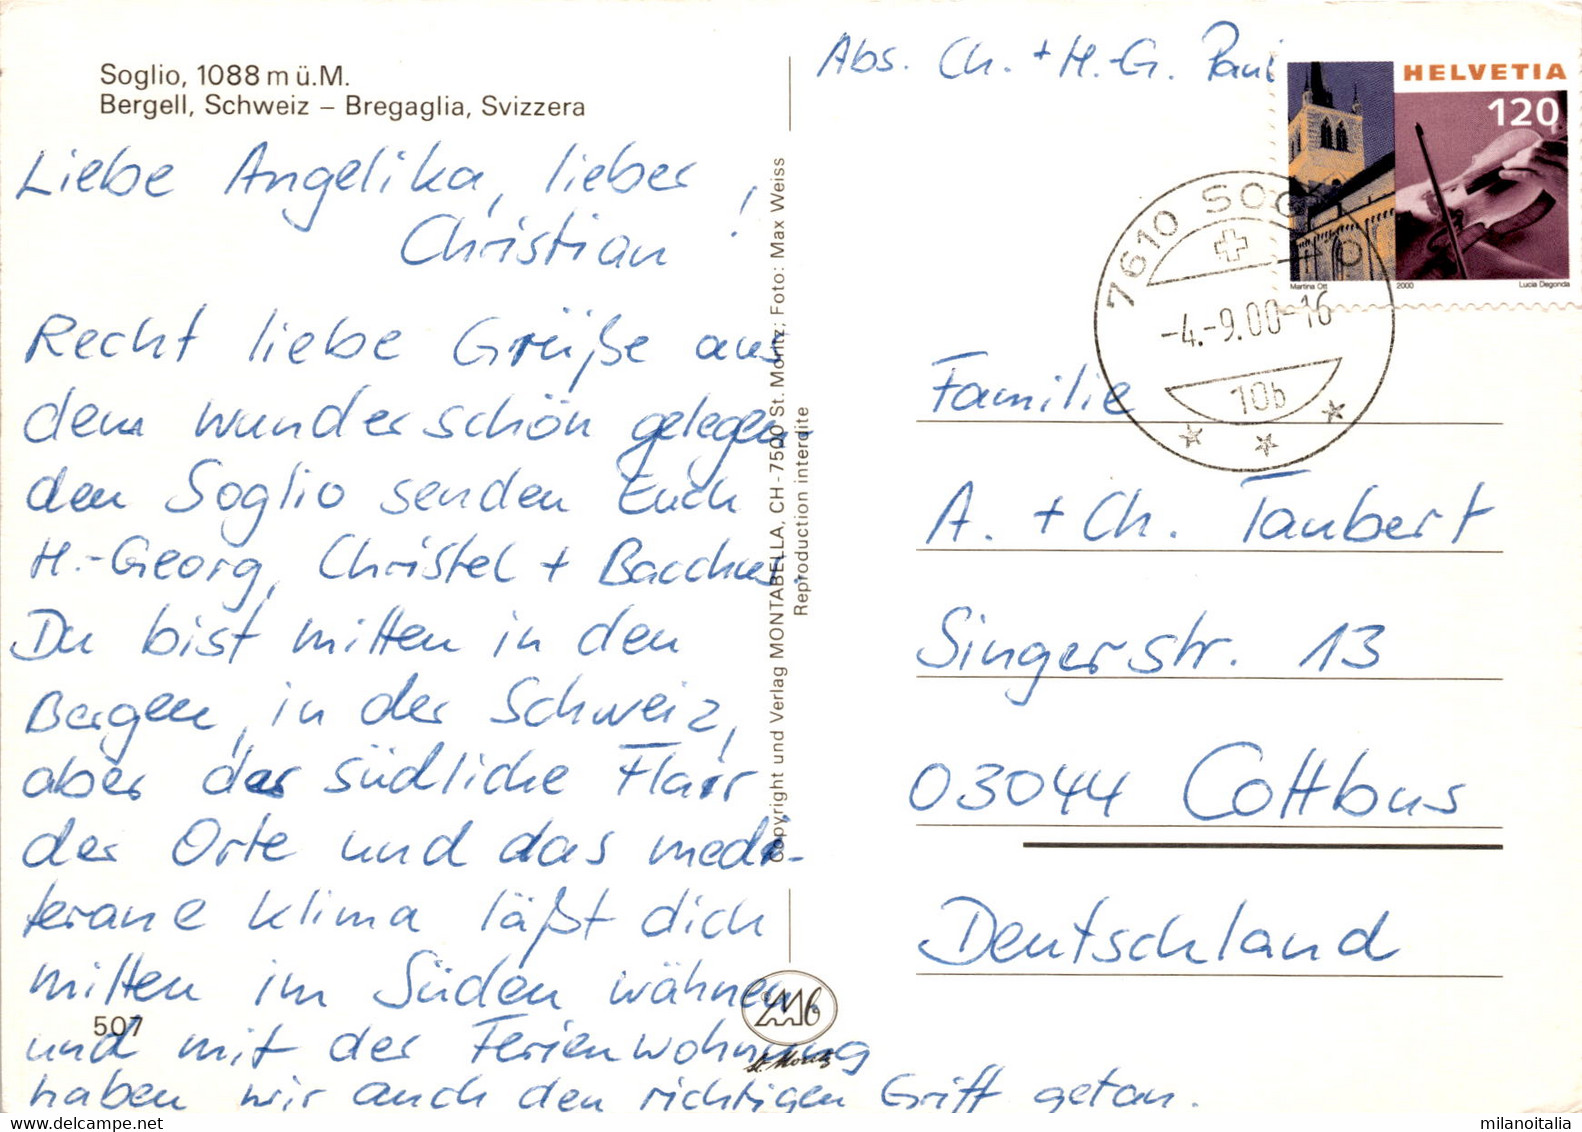 Soglio, 1088 m ü.M.
Bergell, Schweiz – Bregaglia, Svizzera
Liebe Angelika, lieber
Christian!
Recht liebe Grüße aus
dem wunderschön gelegen-
den Soglio senden Euch
H.-Georg, Christel + Bacchus.
Du bist mitten in den
Bergen, in der Schweiz,
aber das südliche Flair
der Orte und das medi-
terane Klima läßt dich
mitten im Süden wähnen
507
und mit der Ferienwohnung
haben wir auch den richtigen Griff getan.
Copyright und Verlag MONTABELLA, CH-7500 St. Moritz; Foto: Max Weiss
Reproduction interdite
St. Moritz
Abs. Ch. + H.-G. Paul
HELVETIA
120
Martina Ott 2000 Lucia Degonda
7610 SOGLIO
-4.-9.00-16
10b
Familie
A. + Ch. Taubert
Singerstr. 13
03044 Cottbus
Deutschland
milanoitalia